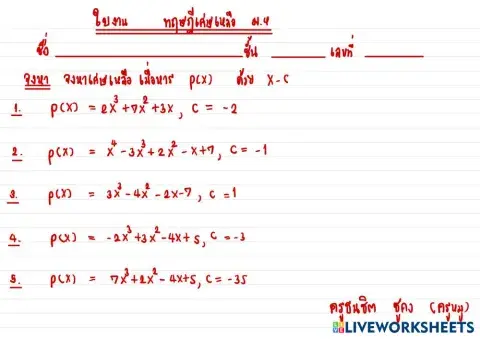 ใบงาน ทฤษฎีเศษเหลือ ม.4
ชื่อ ชั้น เลขที่
จงหา จงหาเศษเหลือ เมื่อหาร P(X) ด้วย X-C
1. P(X) = 2x³+7x²+3x, C = -2
2. P(X) = x⁴-3x³+2x²-x+7, C = -1
3. P(X) = 3x³-4x²-2x-7, C =1
4. P(X) = -2x³+3x²-4x+5, C = -3
5. P(X) = 7x³+2x²-4x+5, C = -35
ครูชนชิต ชูคง (ครูหมู)
LIVEWORKSHEETS